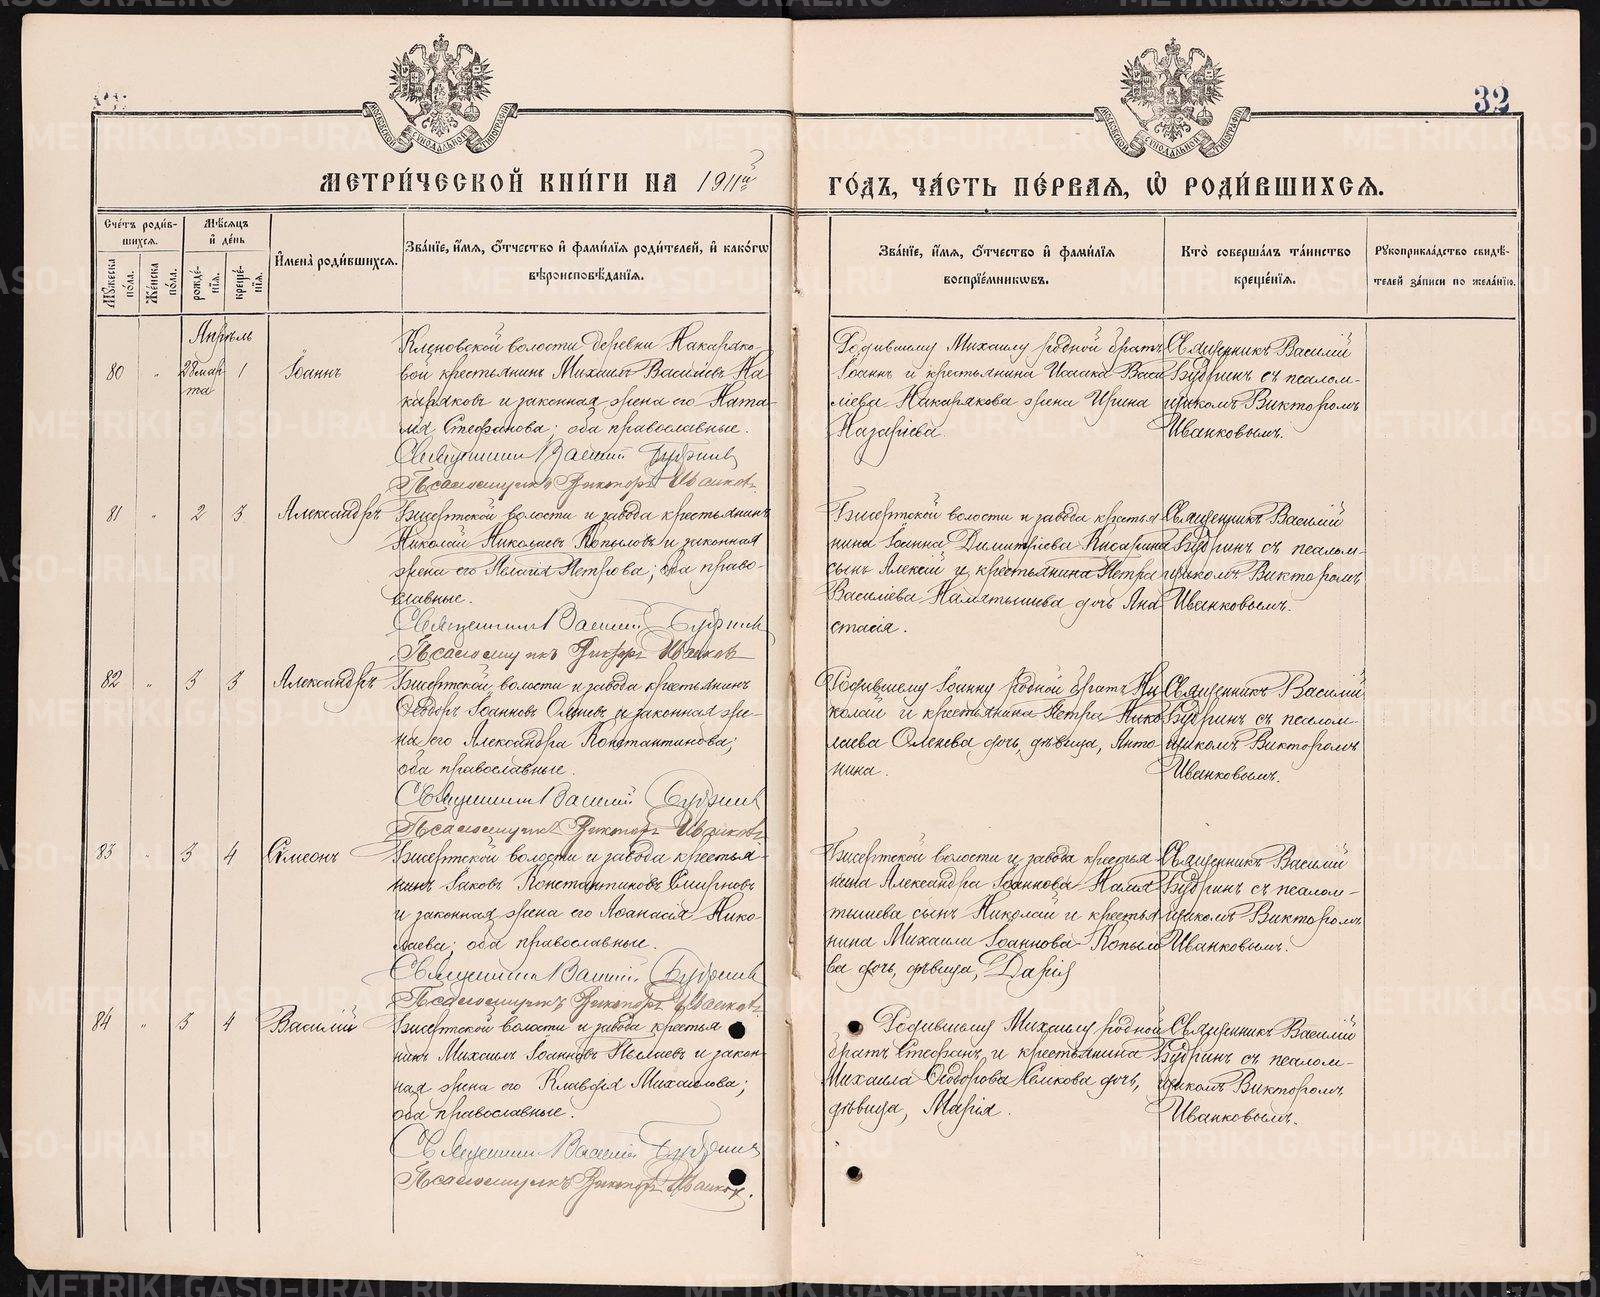 32
МЕТРИ́ЧЕСКОЙ КНИ́ГИ НА 1911й
ГО́ДЪ, ЧА́СТЬ ПЕ́РВАЯ, Ѿ РОДИ́ВШИХСЯ.
Сче́тъ роди́в-
шихся.
Мѣ́сяцъ
и҆ де́нь
Мꙋ́жеска по́ла.
Же́нска по́ла.
рожде́-
нїя.
креще́-
нїя.
И҆мена̀ роди́вшихся.
Зва́нїе, и҆́мя, ѻ҆́тчество и҆ фами́лїя роди́телей, и҆ како́гѡ
вѣроисповѣ́данїя.
Зва́нїе, и҆́мя, ѻ҆́тчество и҆ фами́лїя
воспрїе́мникѡвъ.
Кто̀ соверша́лъ та́инство
креще́нїя.
Рꙋкоприкла́дство свидѣ́-
телей за́писи по жела́нїю.
Апрѣль
80 „ 28 мар-
та 1 Іоаннъ
Кленовской волости деревни Накаряко-
вой крестьянинъ Михаилъ Васильевъ На-
каряковъ и законная жена его Ната-
лія Стефанова; оба православные.
Священникъ Василій Будринъ
Псаломщикъ Викторъ Иванковъ
Родившему Михаилу родной братъ
Іоаннъ и крестьянина Исаака Васи
ліева Накарякова жена Ирина
Назаріева.
Священникъ Василій
Будринъ съ псалом-
щикомъ Викторомъ
Иванковымъ.
81 „ 2 3 Александръ
Бисертской волости и завода крестьянинъ
Николай Николаевъ Копыловъ и законная
жена его Пелагія Петрова; оба право-
славные.
Священникъ Василій Будринъ
Псаломщикъ Викторъ Иванковъ
Бисертской волости и завода крестья
нина Іоанна Димитріева Писарина
сынъ Алексій и крестьянина Петра
Василіева Малятышева дочь Ана
стасія.
Священникъ Василій
Будринъ съ псалом-
щикомъ Викторомъ
Иванковымъ.
82 „ 3 3 Александръ
Бисертской волости и завода крестьянинъ
Ѳеодоръ Іоанновъ Оленевъ и законная же-
на его Александра Константинова;
оба православные.
Священникъ Василій Будринъ
Псаломщикъ Викторъ Иванковъ
Родившему Іоанну родной братъ Ни
колай и крестьянина Петра Нико
лаева Оленева дочь, дѣвица, Анто
нина.
Священникъ Василій
Будринъ съ псалом-
щикомъ Викторомъ
Иванковымъ.
83 „ 3 4 Симеонъ
Бисертской волости и завода крестья-
нинъ Іаковъ Константиновъ Смирновъ
и законная жена его Аѳанасія Нико-
лаева; оба православные.
Священникъ Василій Будринъ
Псаломщикъ Викторъ Иванковъ
Бисертской волости и завода крестья
нина Александра Іоаннова Маля
тышева сынъ Николай и крестья
нина Михаила Іоаннова Копыло
ва дочь, дѣвица, Дарія
Священникъ Василій
Будринъ съ псалом-
щикомъ Викторомъ
Иванковымъ.
84 „ 3 4 Василій
Бисертской волости и завода крестья
нинъ Михаилъ Іоанновъ Пылаевъ и закон-
ная жена его Клавдія Михаилова;
оба православные.
Священникъ Василій Будринъ
Псаломщикъ Викторъ Иванковъ.
Родившему Михаилу родной
братъ Стефанъ и крестьянина
Михаила Ѳеодорова Семкова дочь,
дѣвица, Марія.
Священникъ Василій
Будринъ съ псалом-
щикомъ Викторомъ
Иванковымъ.
METRIKI.GASO-URAL.RU